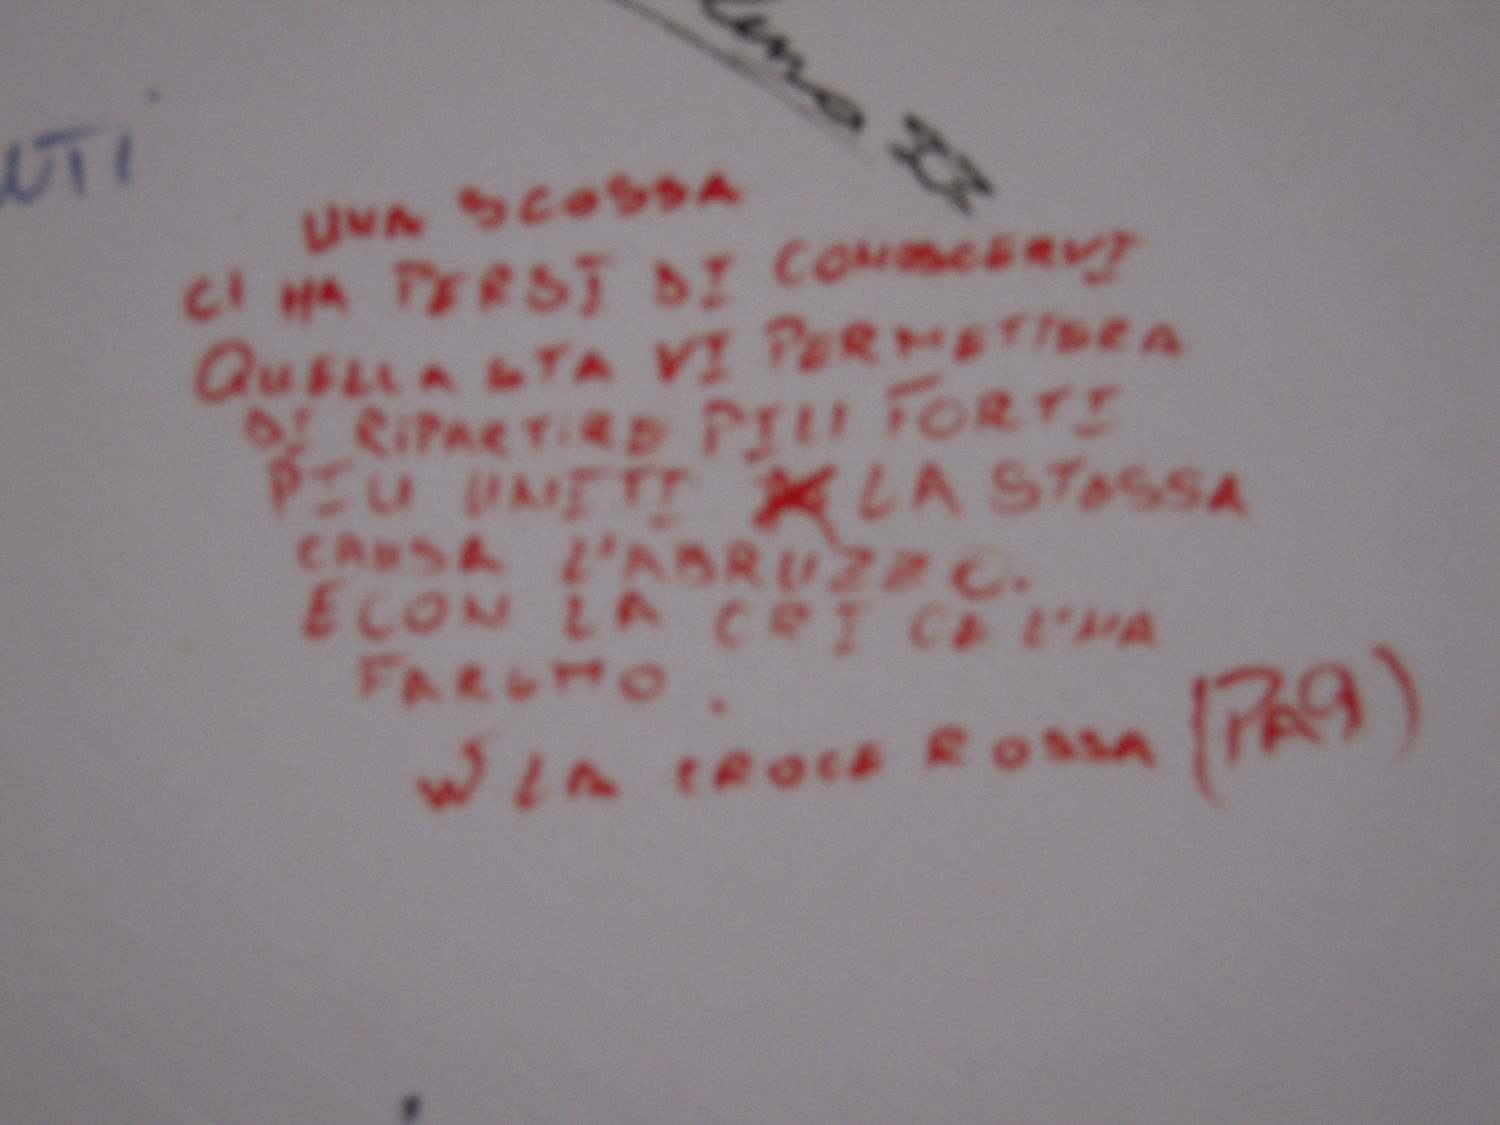 UNA SCOSSA
CI HA PERSI DI CONOSCERVI
QUELLA VI PERMETTERA
DI RIPARTIRE PIU FORTI
PIU UNITI LA STESSA
CAUSA L'ABRUZZO.
E CON LA CRI CE L'HA
FAREMO.
W LA CROCE ROSSA (PA9)